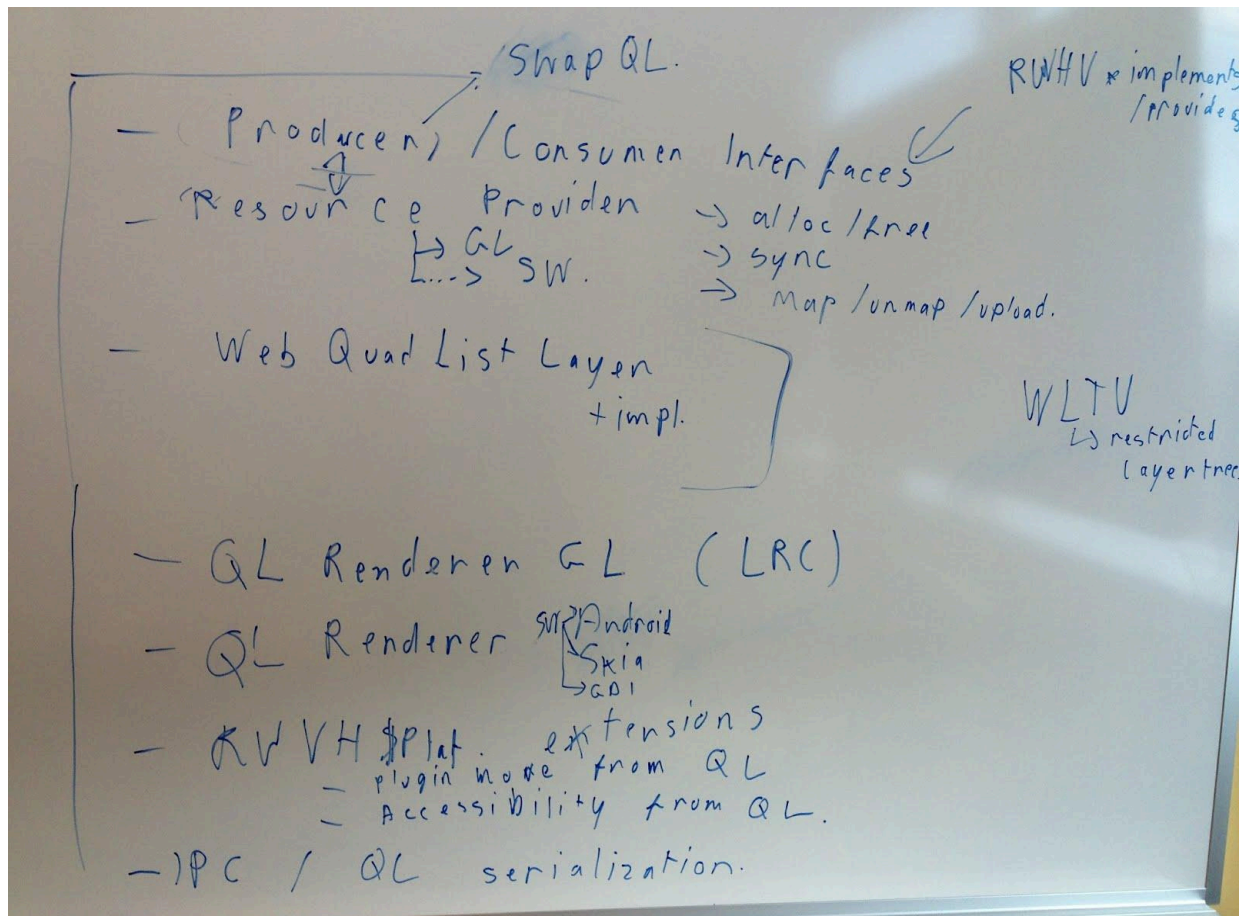 Swap QL.
RWHV * implements
/provides
- Producer, /Consumer Interfaces
- Resource Provider → alloc/free
→ GL → sync
→ SW. → Map/unmap/upload.
- Web Quad List Layer
+ impl.
WLTV
↳ restricted
layer trees
- QL Renderer GL (LRC)
- QL Renderer SW → Android
→ Skia
→ GDI
- RWVH $Plat. extensions
- plugin move from QL
- Accessibility from QL.
- IPC / QL serialization.